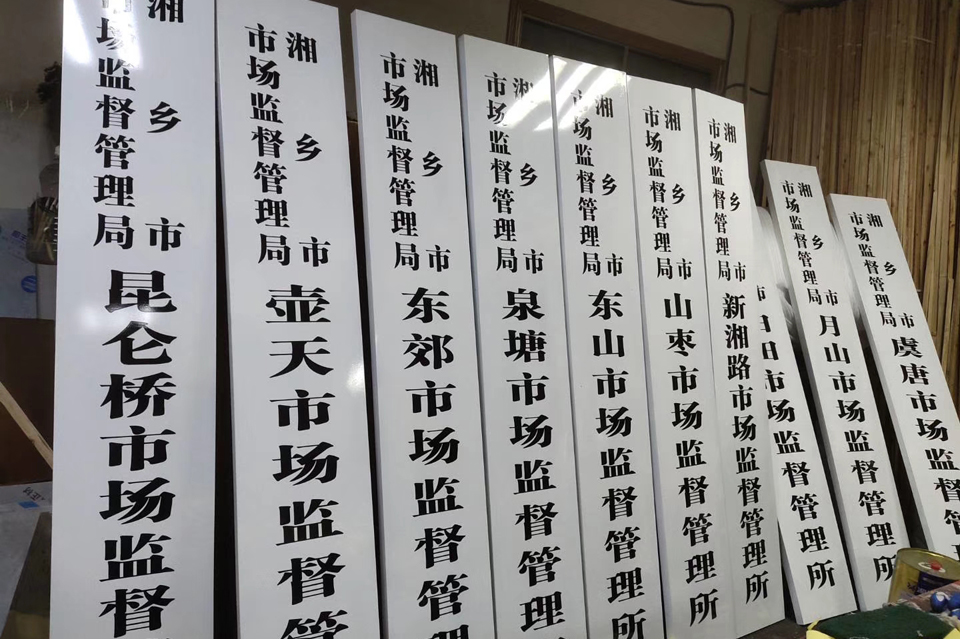 湘乡市
市场监督管理局
昆仑桥市场监督
湘乡市
市场监督管理局
壶天市场监督管
湘乡市
市场监督管理局
东郊市场监督管
湘乡市
市场监督管理局
泉塘市场监督管理
湘乡市
市场监督管理局
东山市场监督管理所
湘乡市
市场监督管理局
山枣市场监督管理所
湘乡市
市场监督管理局
新湘路市场监督管理所
市
市场监督管理所
湘乡市
市场监督管理局
月山市场监督管理所
湘乡市
市场监督管理局
虞唐市场监督管